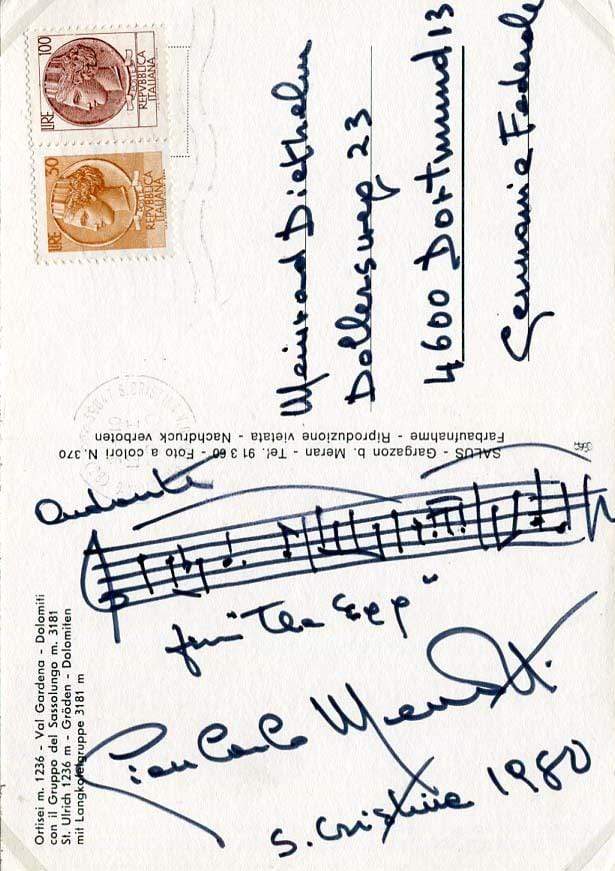 LIRE 100
POSTE
REPVBBLICA
ITALIANA
LIRE 50
REPVBBLICA
ITALIANA
Meinrad Diethelm
Dollersweg 23
4600 Dortmund 13
Germania Federale
SALUS - Gargazon b. Meran - Tel. 91 3 60 - Foto a colori N. 370
Farbaufnahme - Riproduzione vietata - Nachdruck verboten
Andante
from "The Egg"
Gian Carlo Menotti
S. Cristina 1980
Ortisei m. 1236 - Val Gardena - Dolomiti
con il Gruppo del Sassolungo m. 3181
St. Ulrich 1236 m - Gröden - Dolomiten
mit Langkofelgruppe 3181 m